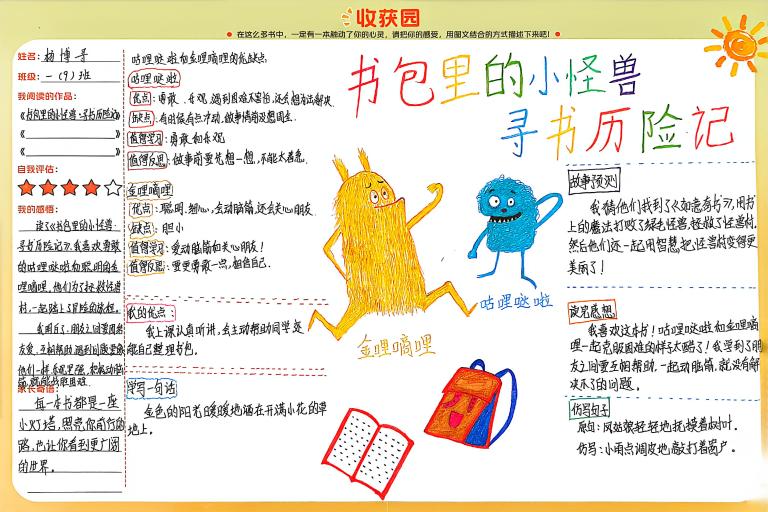 收获园
在这么多书中，一定有一本触动了你的心灵，请把你的感受，用图文结合的方式描述下来吧！
书包里的小怪兽
寻书历险记
姓名：杨博寻
班级：一（9）班
我阅读的作品：
《书包里的小怪兽·寻书历险记》
《》
《》
自我评估：
我的感悟：
读了《书包里的小怪兽·
寻书历险记》，我喜欢勇敢
的咕哩哒啦和聪明的金
哩嘀哩，他们为了拯救怪兽
村，一起踏上了冒险的旅程。
我明白了，朋友之间要团结
友爱、互相帮助，遇到困难要像
他们一样
就能战胜困难。
家长寄语：
每一本书都是一座
小灯塔，照亮你前行的
路，也让你看到更广阔
的世界。
咕哩哒啦和金哩嘀哩的优缺点
咕哩哒啦
优点：勇敢、乐观，遇到困难不害怕，还会想办法解决
缺点：有时候有点冲动，做事情前没想周全。
值得学习：勇敢和乐观
值得反思：做事前要先想一想，不能太着急。
金哩嘀哩
优点：聪明、细心，会动脑筋，还会关心朋友
缺点：胆小
值得学习：爱动脑筋和关心朋友！
值得反思：要更勇敢一点，相信自己。
我的优点：
我上课认真听讲，会主动帮助同学，还
能自己整理书包。
学写一句话
金色的阳光暖暖地洒在开满小花的草
地上。
金哩嘀哩
咕哩哒啦
故事预测
我猜他们找到了《如意奇书》，用书
上的魔法打败了绿毛怪兽，拯救了怪兽村。
然后他们还一起用智慧把怪兽村变得更
美丽了！
读完感想
我喜欢这本书！咕哩哒啦和金哩嘀
哩一起克服困难的样子太酷了！我学到了朋
友之间要互相帮助，一起动脑筋，就没有解
决不了的问题。
仿写句子
原句：风姑娘轻轻地抚摸着树叶。
仿写：小雨点调皮地敲打着窗户。